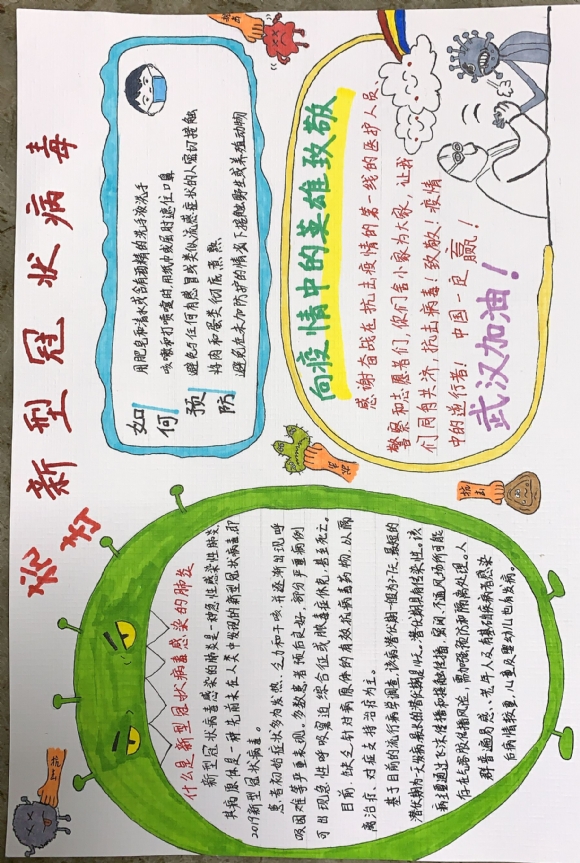 抗击新型冠状病毒
什么是新型冠状病毒感染的肺炎
新型冠状病毒感染的肺炎是一种急性感染性肺炎
其病原体是一种先前未在人类中发现的新型冠状病毒,即
2019新型冠状病毒。
患者初始症状多为发热、乏力和干咳,并逐渐出现呼
吸困难等严重表现。多数患者预后良好,部分严重病例
可出现急性呼吸窘迫综合征或脓毒症休克,甚至死亡。
目前,缺乏针对病原体的有效抗病毒药物,以隔
离治疗、对症支持治疗为主。
基于目前的流行病学调查,该病潜伏期一般为3-7天,最短的
潜伏期为1天发病,最长的潜伏期是14天。潜伏期具有传染性。该
病主要通过飞沫传播和接触传播,密闭、不通风场所可能
存在气溶胶传播风险,需加强预防和隔离处理。人
群普遍易感、老年人及有基础疾病者感染
后病情较重,儿童及婴幼儿也有发病。
如何预防
用肥皂和清水或含有酒精的洗手液洗手
咳嗽和打喷嚏时,用纸巾或屈肘遮住口鼻
避免与任何有感冒或类似流感症状的人密切接触
将肉和蛋类彻底煮熟
避免在未加防护的情况下接触野生或养殖动物
向疫情中的英雄致敬
感谢奋战在抗击疫情的第一线的医护人员、
警察和志愿者们,你们舍小家为大家,让我
们同舟共济,抗击病毒!致敬,疫情
中的逆行者!中国一定赢!
武汉加油!
抗击
抗击
抗击
抗击